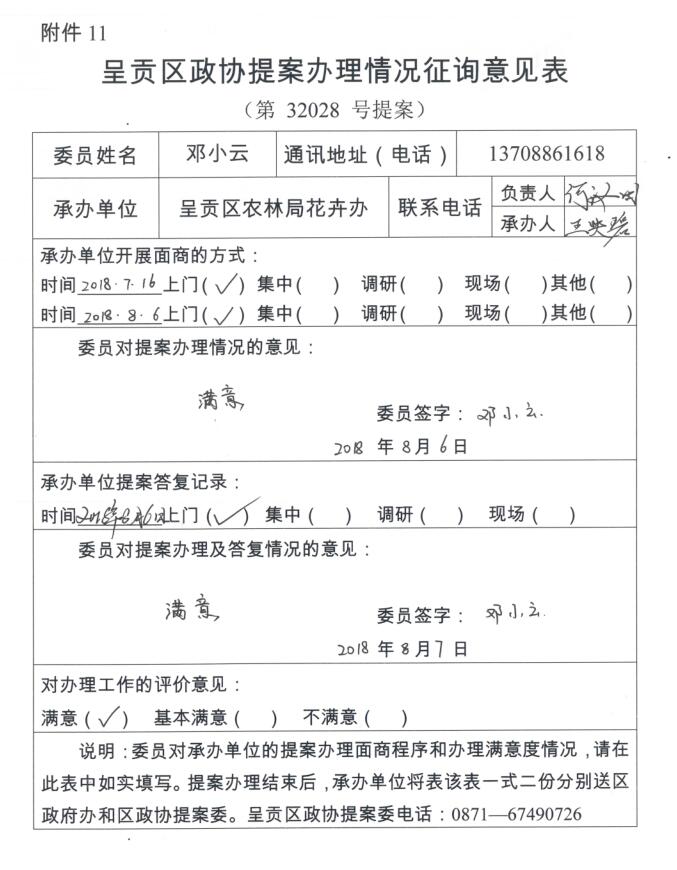 附件 11
呈贡区政协提案办理情况征询意见表
（第 32028 号提案）
委员姓名 邓小云 通讯地址（电话） 13708861618
承办单位 呈贡区农林局花卉办 联系电话 负责人
承办人 王映碧
承办单位开展面商的方式：
时间 2018.7.16 上门(✓) 集中( ) 调研( ) 现场( )其他( )
时间 2018.8.6 上门(✓) 集中( ) 调研( ) 现场( )其他( )
委员对提案办理情况的意见：
满意
委员签字：邓小云
2018 年 8月 6 日
承办单位提案答复记录：
时间2018年8月6日上门(✓) 集中( ) 调研( ) 现场( )
委员对提案办理及答复情况的意见：
满意
委员签字：邓小云
2018 年 8月 7 日
对办理工作的评价意见：
满意(✓) 基本满意( ) 不满意( )
说明：委员对承办单位的提案办理面商程序和办理满意度情况，请在
此表中如实填写。提案办理结束后，承办单位将表该表一式二份分别送区
政府办和区政协提案委。呈贡区政协提案委电话：0871—67490726